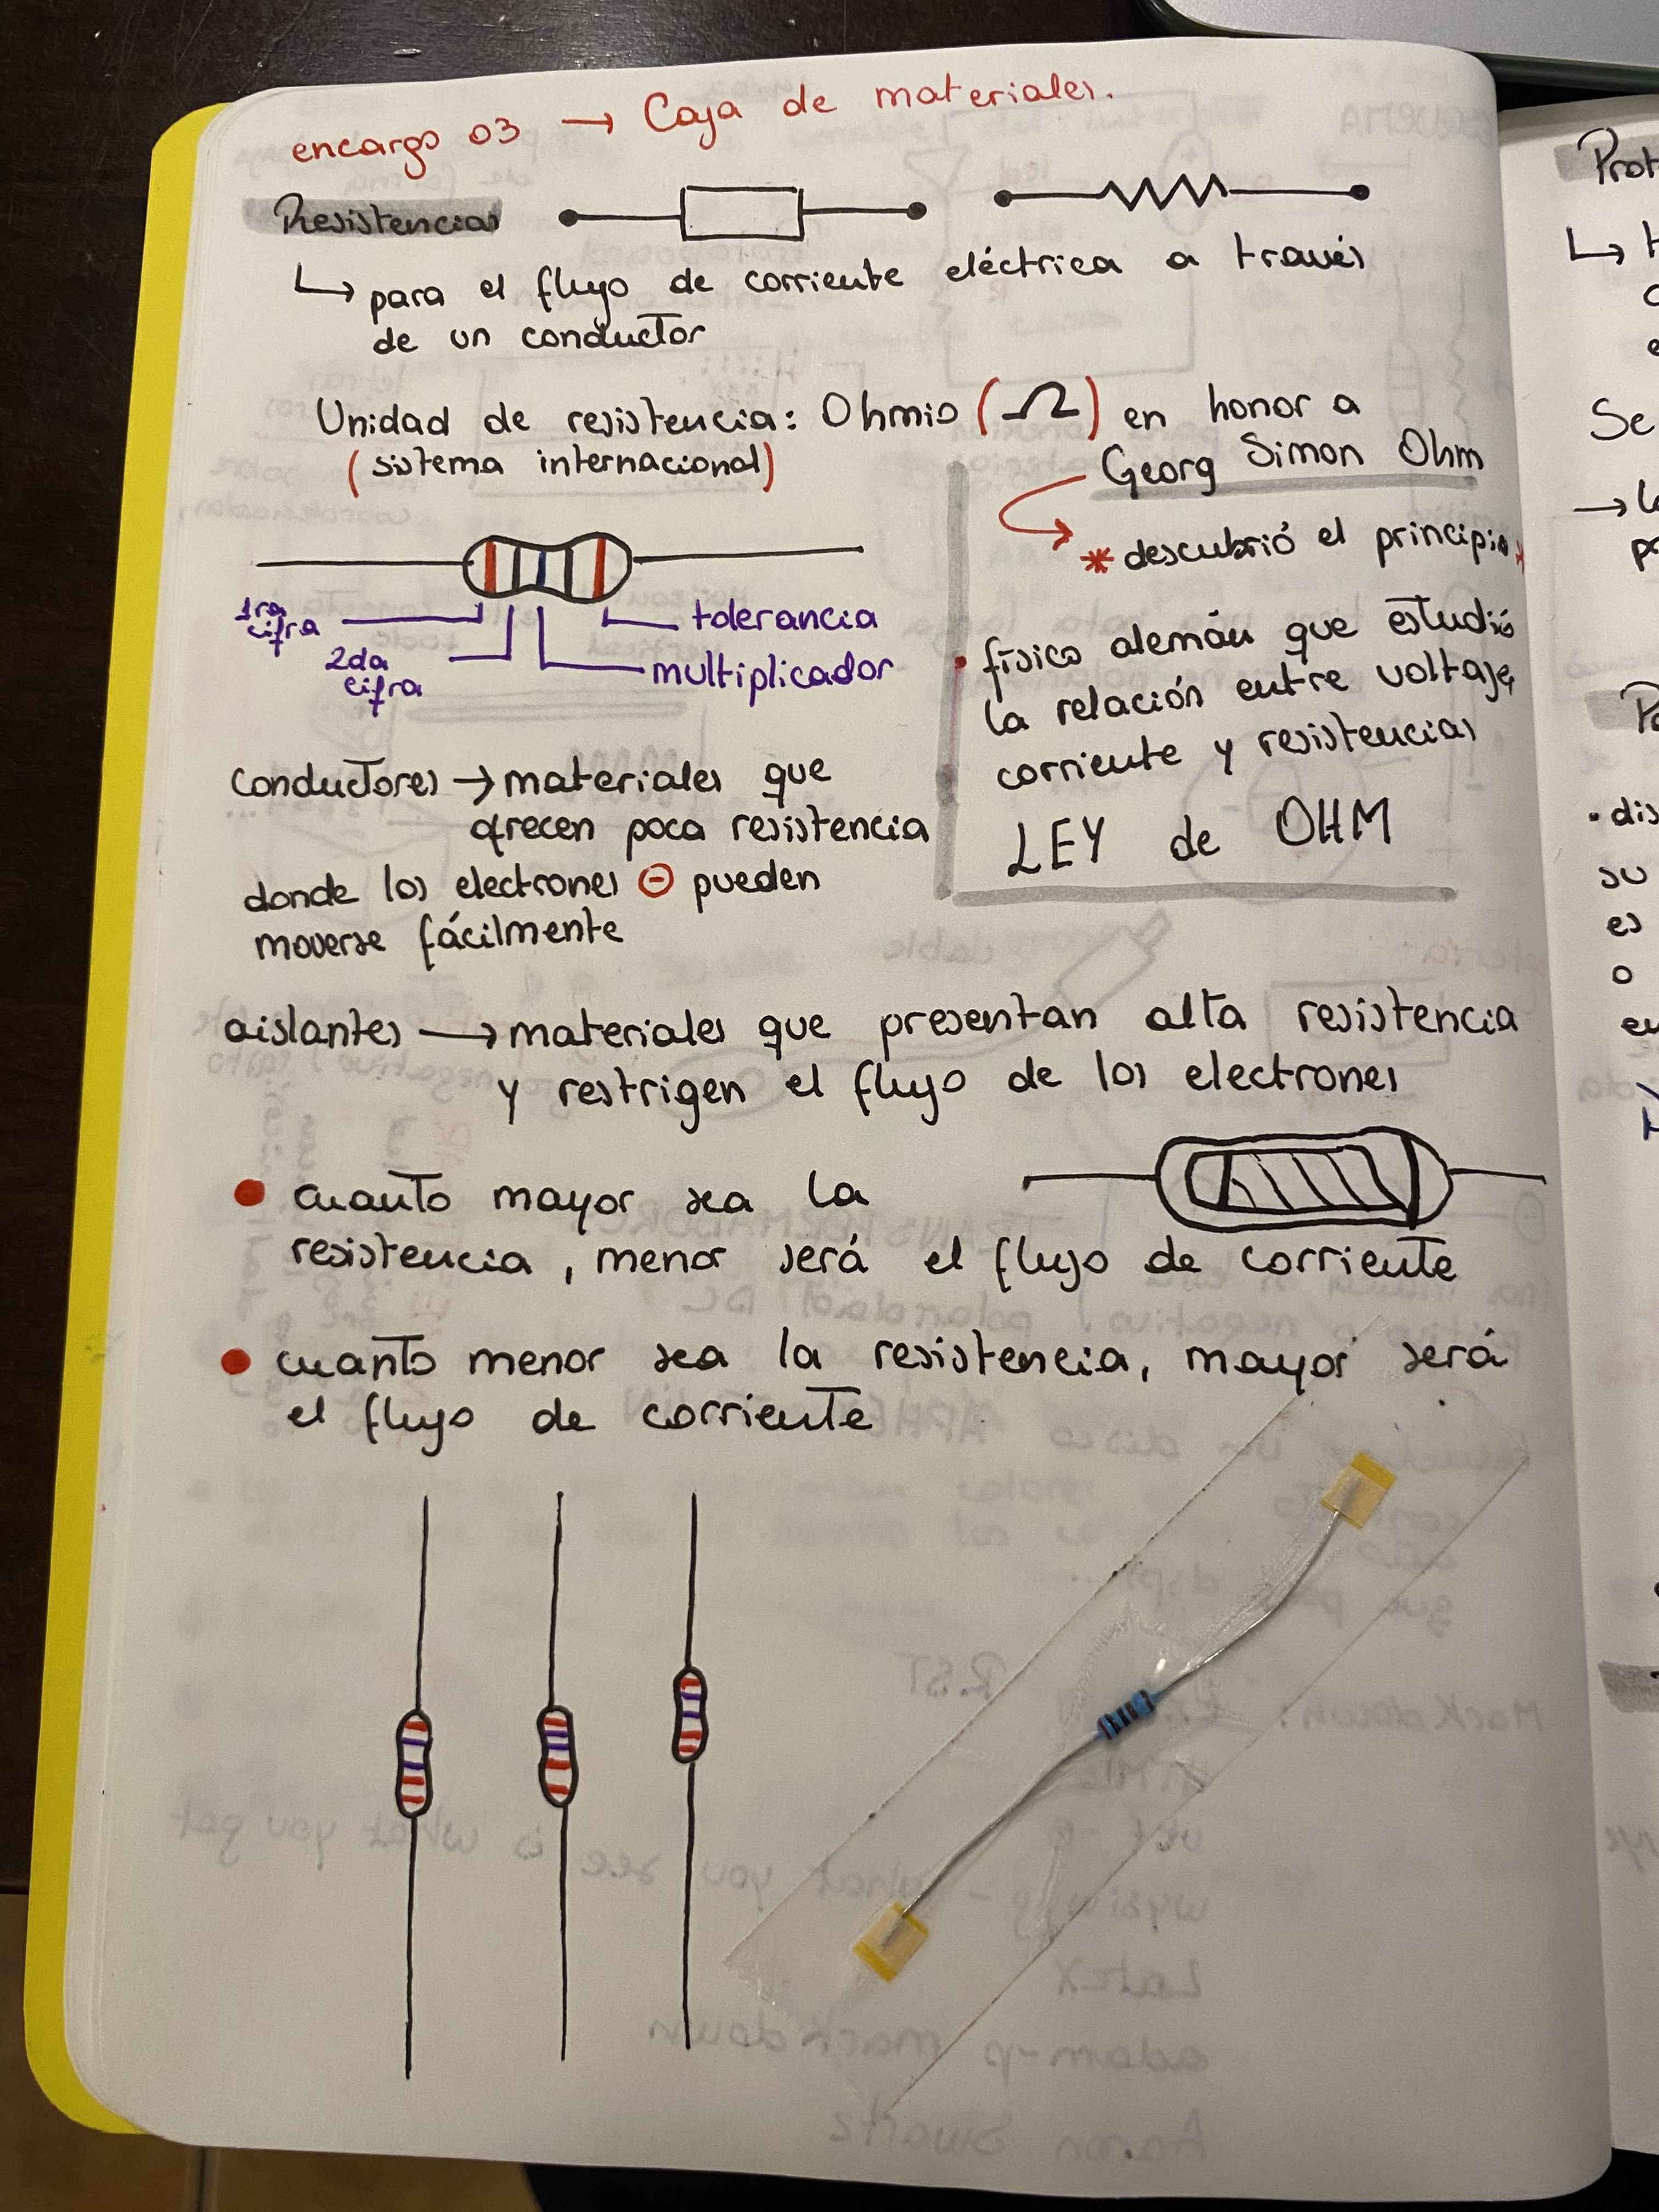 encargo 03 → Caja de materiales.
Resistencias
↳ para el flujo de corriente eléctrica a través
de un conductor
Unidad de resistencia: Ohmio (Ω) en honor a
(sistema internacional)
Georg Simon Ohm
* descubrió el principio *
• físico alemán que estudió
la relación entre voltaje,
corriente y resistencias
LEY de OHM
1ra
cifra
2da
cifra
tolerancia
multiplicador
conductores → materiales que
ofrecen poca resistencia
donde los electrones ⊖ pueden
moverse fácilmente
aislantes → materiales que presentan alta resistencia
y restrigen el flujo de los electrones
• cuanto mayor sea la
resistencia, menor será el flujo de corriente
• cuanto menor sea la resistencia, mayor será
el flujo de corriente
Se
su
es
o